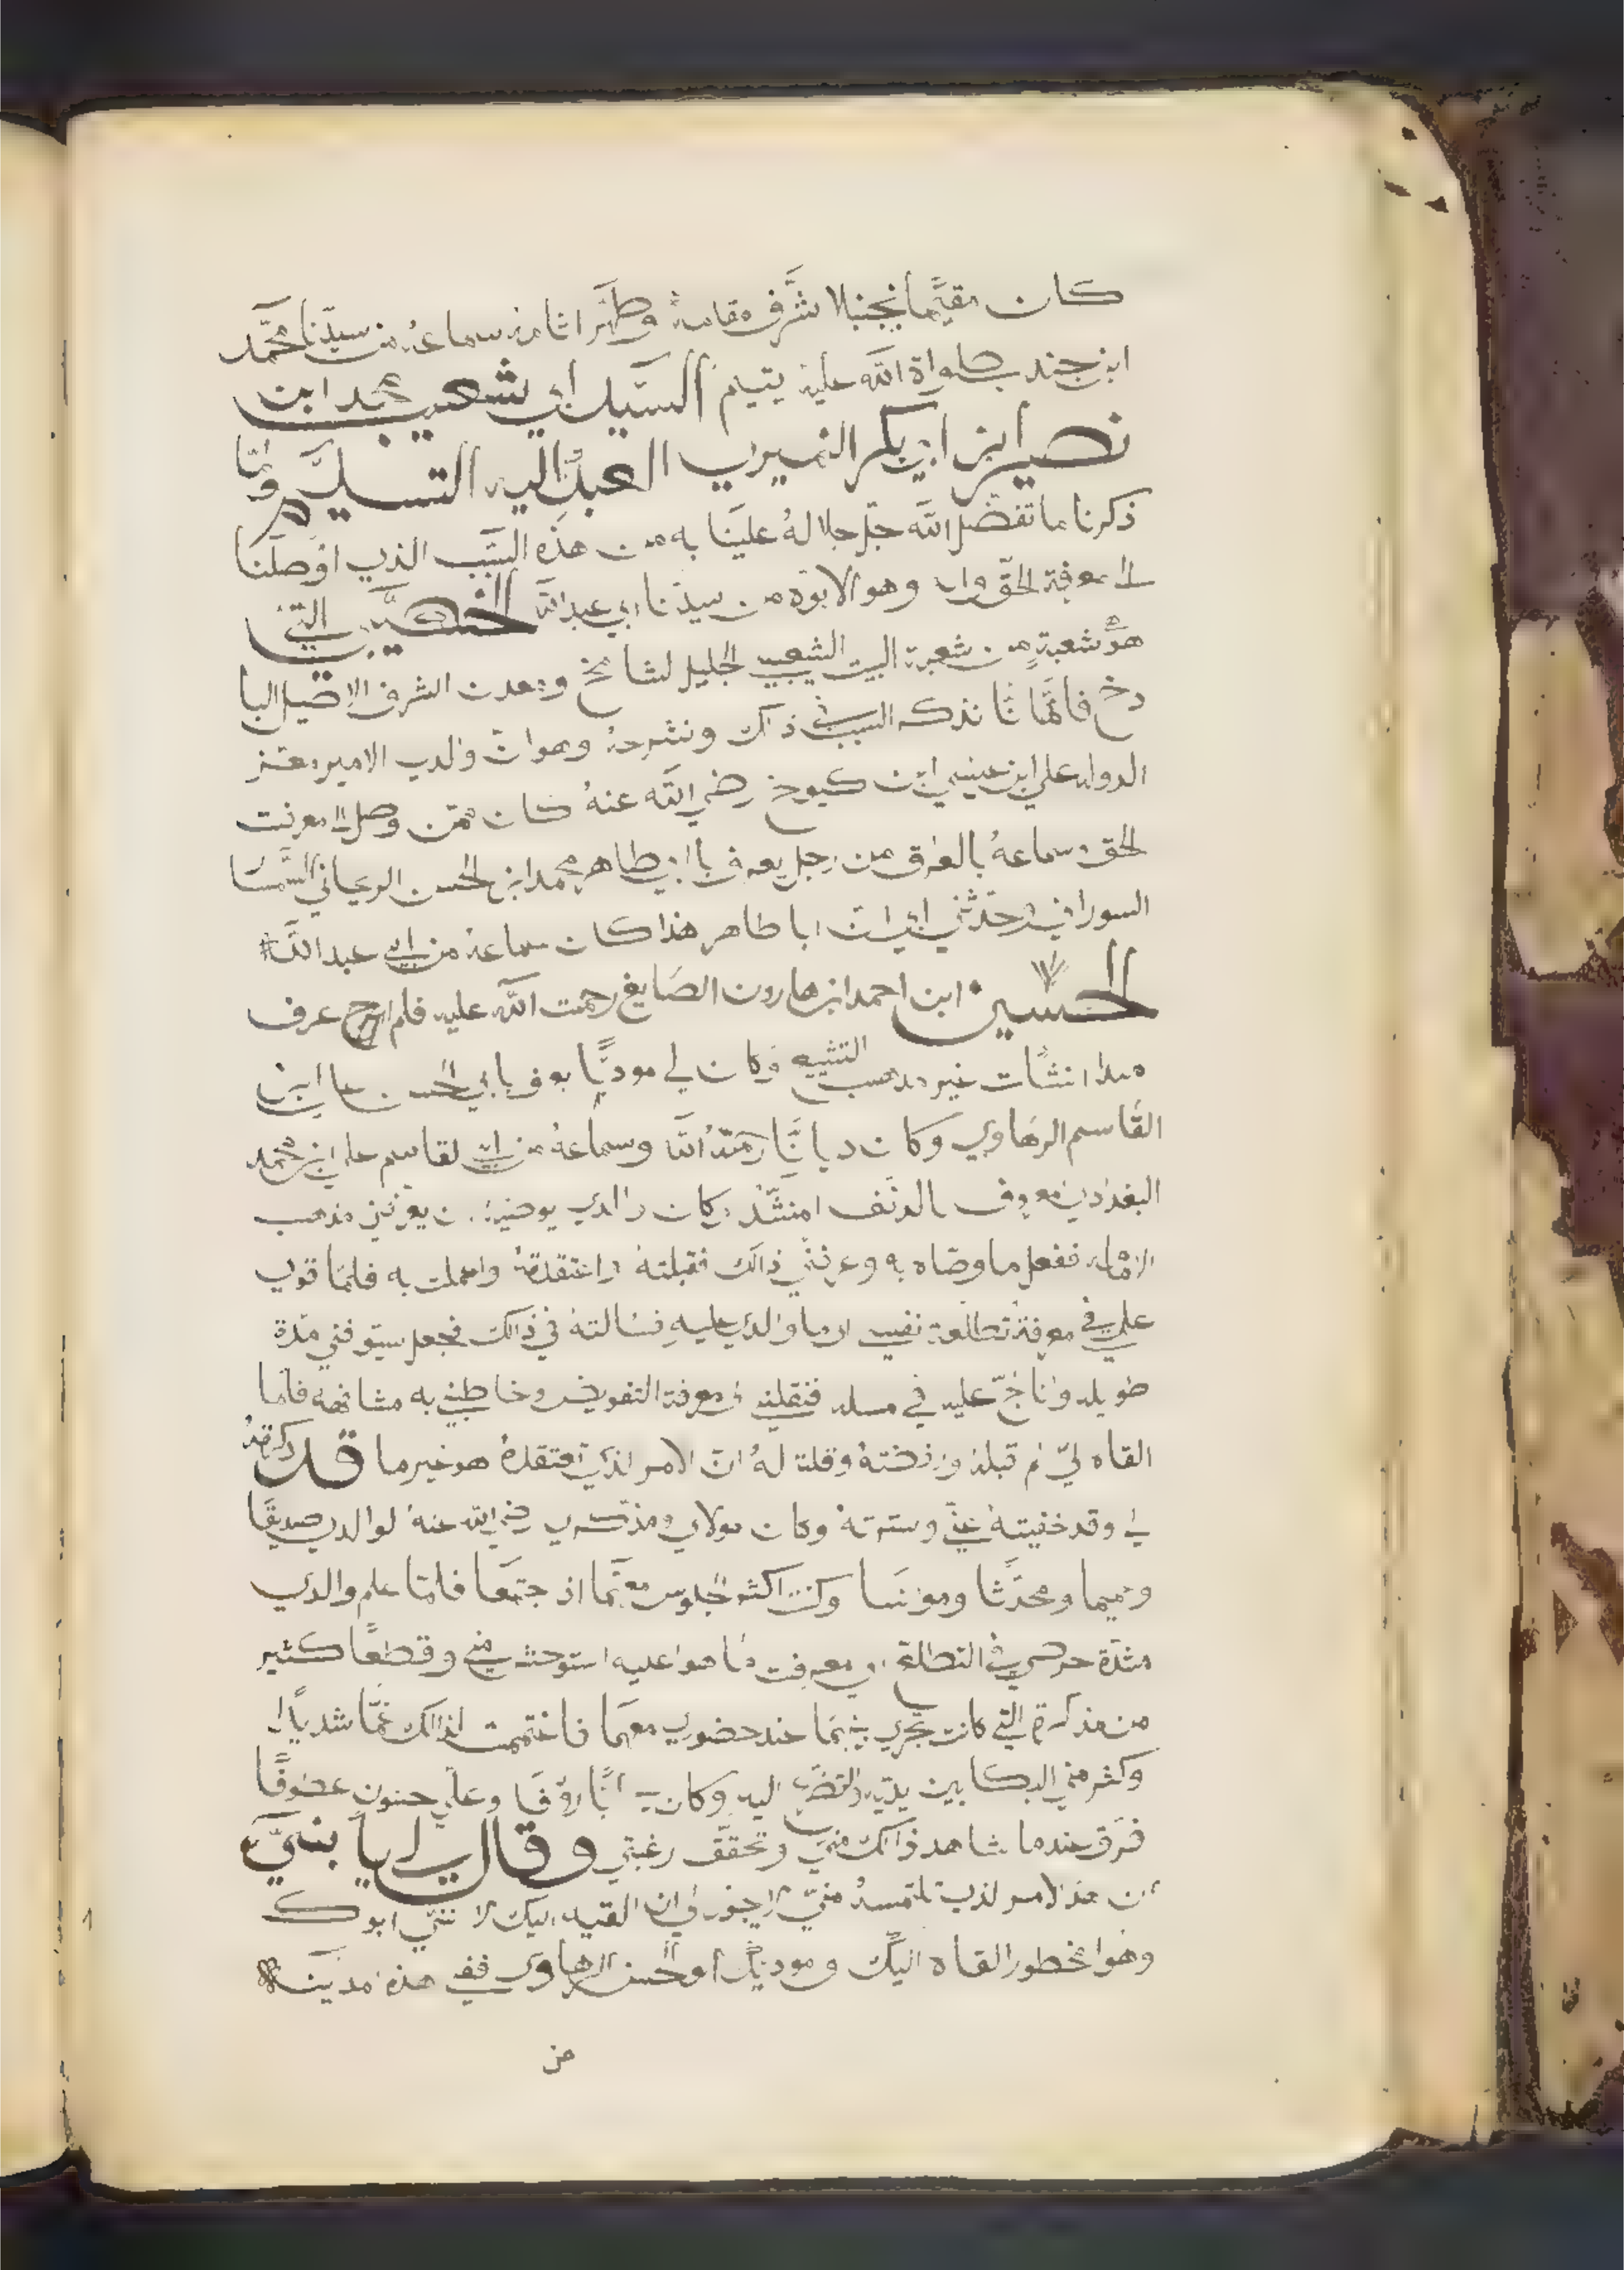 كان مقيمًا بجنبلا شرَّف مقامهُ وطهّر اثاره سماعهُ من سيّدنا محمَّد
ابن جندب صلواة اللّه عليهِ يتيم السيّد ابي شعيب محمد ابن
نصير ابن ابي بكر النميري العبدُ اليه التسليم وامّا
ذكرنا ما تفضّل اللّه جلّ جلالهُ علَينا به من هذه السَبَب الذي اوْصَلَنا
الى معرفة الحقّ وهو الابوّة من سيدّنا ابي عبد اللّه الخصيبي التي
هوّ شعبةٍ من شعبة البيت الشعيبي الجليل لشامخ ومعدن الشرف الاصيل البا
دخ فانّما نذكر السبب في ذالك ونشرحهُ وهو انّ والدي الامير معتز
الدوله علي ابن عيسي ابن كيوخ رضي اللّه عنهُ كان ممّن وصل الى معرفت
الحق وسماعهُ بالعراق من رجل يعرف بابي طاهر محمد ابن الحسن الرعياني
السوراني وحدّثني ابي انّ ابا طاهر هذا كان سماعهُ من ابي عبد اللّه
الحسين ابن احمد ابن هارون الصَايغ رحمت اللّه عليه فلم ارح عرف
مبدا انشأت غير مدهب التشيع وكان لي مودبًّا يعرف بابي الحسن علي ابن
القَاسم الرهَاوي وكان ديانًّا رحمَةُ اللّه وسماعهُ من ابي لقاسم علي ابن محمد
البغدادي معروف بالدنَف وكان والدي يوصيهِ ان يعرفني مذهب
الاماميه ففعل ما وصّاه به وعرفني ذالك فقبلتهُ واعتقدتهُ وعملت به فلمَا قوي
علي في معرفة تطالعة نفسي الى ما والدي عليهِ فسَالتهُ في ذالك فجعل يسَوفني مدّة
طويله وانا نلحّ عليه في مسله فنقلني الى معرفة التفويض وخاطبني به مشافهه فلمّا
القاه ليّ لم قبلهُ ورفضتهُ وقلت لهُ انّ الامر الذي تعتقدهُ هو غير ما قد ذكرتهُ
لي وقد خفيتهُ عنّي وسترتهُ وكان مولاي ومذكري رضي اللّه عنهُ لوالدي صديقًا
وحميما ومحدَثًا ومونسَا وكنت اكثر الجلوس معهَّما اذ جتمعَا فلمّا علم والدي
شدّة حرصي في التطالع الى معرفت مَا هو اعليه استوحش منّي وقطعَا كثير
من مذكرة التي كانت تجري بينهمَا عند حضوري معهمَا فاغتممت لذالك غمّا شديدًا
وكثر منّي البكا بين يديّه والتضرّع اليه وكان بي ابًّا روفًا وعليّ حنون عطوفًا
فرَقّ عندما شاهد ذالك منّي وتحقّق رغبتي وقال لي يا بنيّ
ان هذ الامر الذي تلتمسهُ منيّ لا يجوز لي ان القيه اليك لا ننيّ ابوك
وهو امحظور القاه اليكَ ومودبكَ ابو الحسن الرهاوي ففي هذه مدينَة
من